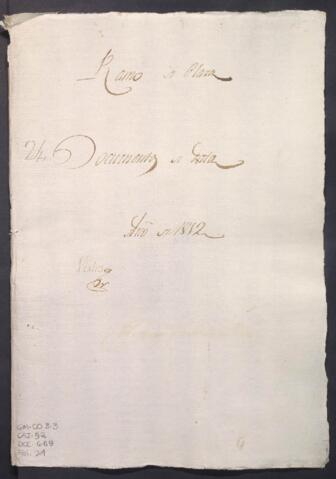 Ramo de Plata
24 Documentos de Data
Año de 1812
Vistos
GM-CO 3-3
CAJ: 52
DOC: 669
FOL: 24